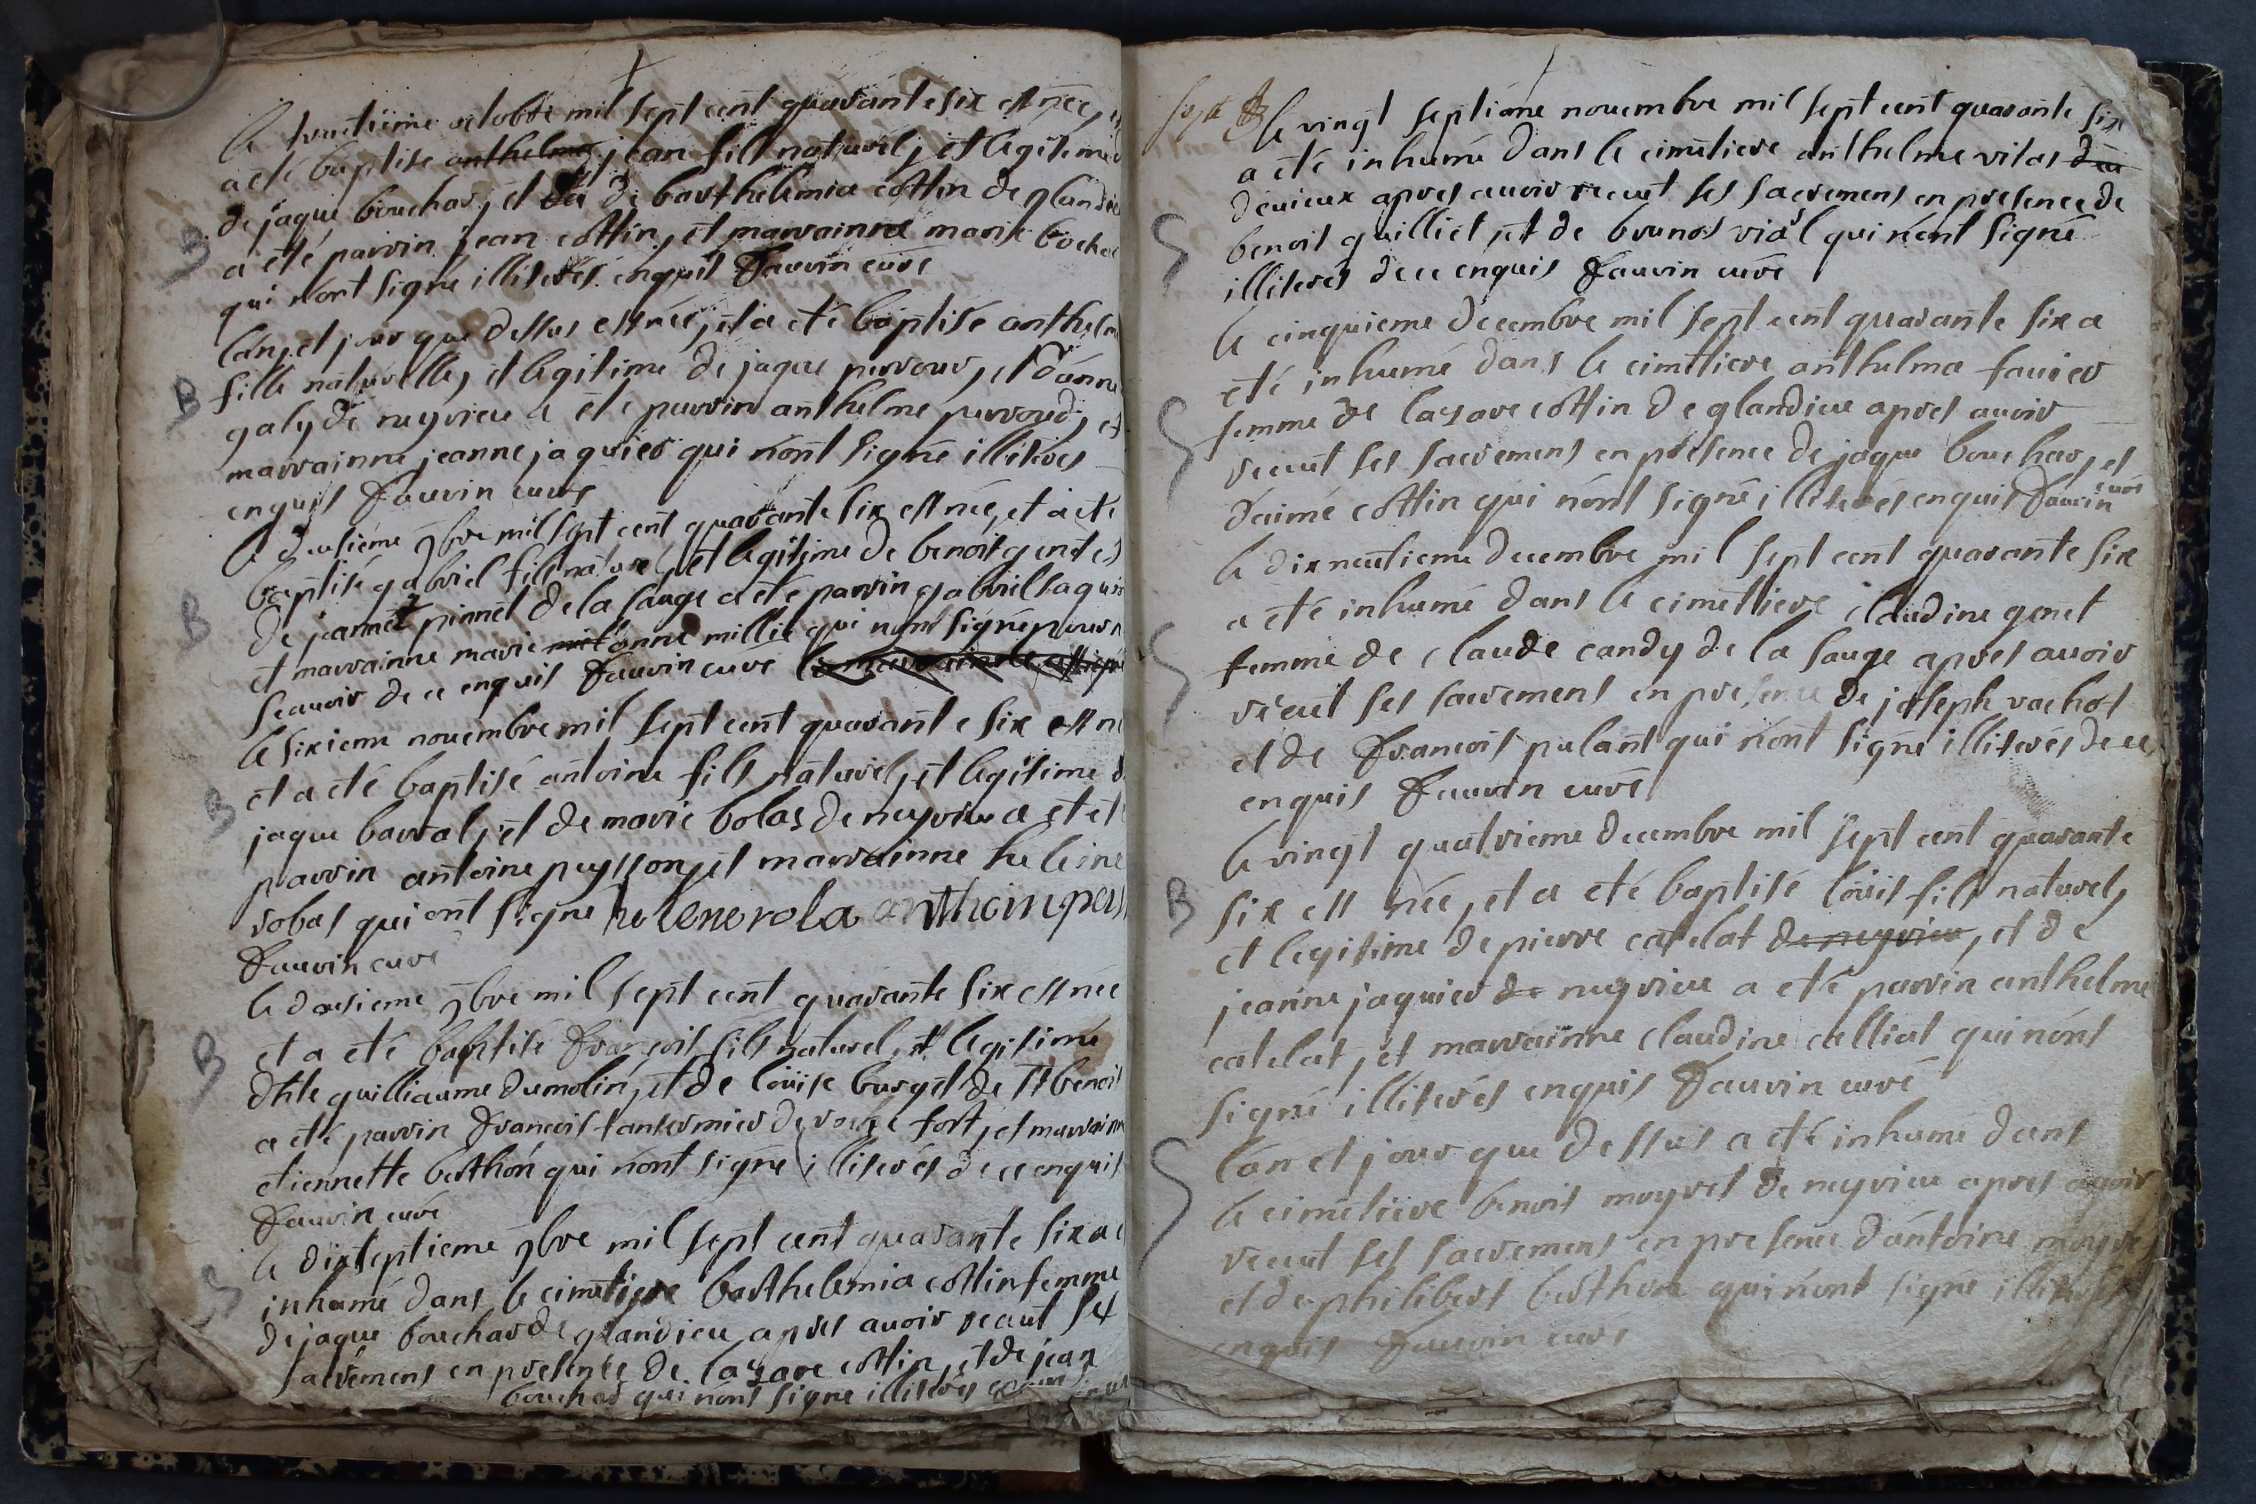 le trentiéme octobre mil sept cent quarante six est née, et
a eté baptisé anthelme jean fils naturel, et legitime
de jaque bouchar, et de barthelemia cottin de glandieu
a eté parrin jean cottin, et marrainne marie bochar
qui nont signé illiterés enquis Fauvin curé
lán, et jour que dessus est née, et a eté baptisé anthelme
fille naturelle, et legitime de jaque perroud, et dánne
galy de neyrieu a eté parrin anthelme perroud, et
marrainne jeanne jaquier qui nónt signé illiterés
enquis Fauvin curé
B
B
le deusiéme 9bre mil sept cent quarante six est née, et a eté
baptisé gabriel fils naturel, et legitime de benoit genet et
de jannet pinnet de la sauge a eté parrin gabriel jaquier
et marrainne marie anne millie qui nont signé pour ne
scauoir de ce enquis Fauvin curé
B
le sixieme nouembre mil sept cent quarante six est né
et a eté baptisé antoine fils naturel, et legitime de
jaque barral, et de marie bolas de neyrieu a eté
parrin antoine peysson, et marrainne heleine
robas qui ont signe helene rola anthoin peis
Fauvin curé
B
le dousieme 9bre mil sept cent quarante six est née
et a eté baptisé François fils naturel, et legitime
de guilliaume dumolin, et de loüise burget de st benoit
a eté parrin François tantermier de roche fort, et marrainne
etiennette berthón qui nónt signé illiterés de ce enquis
Fauvin curé
B
le dixseptieme 9bre mil sept cent quarante six a eté
inhumé dans le cimetiere barthelemia cottin femme
de jaque bouchar de glandieu apres auoir recut ses
sacremens en presence de lazare cottin, et de jean
bouchar qui nónt signe illiterés
S
le vingt septiéme nouembre mil sept cent quarante six
a eté inhumé dans le cimetiere anthelme vitas
deuieux apres auoir recut ses sacremens en presence de
benoit guilliet, et de brunos vial qui nónt signé
illiterés de ce enquis Fauvin curé
S
le cinquieme decembre mil sept cent quarante six a
eté inhumé dans le cimetiere anthelma fauier
femme de lazare cottin de glandieu apres auoir
recut ses sacremens en présence de jaque bouchar, et
daimé cottin qui nónt signé illiterés enquis Fauvin curé
S
le dixneufieme decembre mil sept cent quarante six
a eté inhumé dans le cimetiere claudine genet
femme de claude candy de la sauge apres auoir
récut ses sacremens en presence de joseph rachot
et de François pulant qui nónt signé illiterés de ce
enquis Fauvin curé
S
le vingt quatrieme decembre mil sept cent quarante
six est née, et a eté baptisé loüis fils naturel,
et legitime de pierre catelat de neyrieu, et de
jeanne jaquier de neyrieu a eté parrin anthelme
catelat, et marrainne claudine calliat qui nónt
signé illiterés enquis Fauvin curé
B
lán et jour que dessus a eté inhumé dans
le cimetiere benoit moyret de neyrieu apres auoir
recut ses sacremens en presence dántoine moyret
et de philibert berthon qui nont signé illiterés
enquis Fauvin curé
S